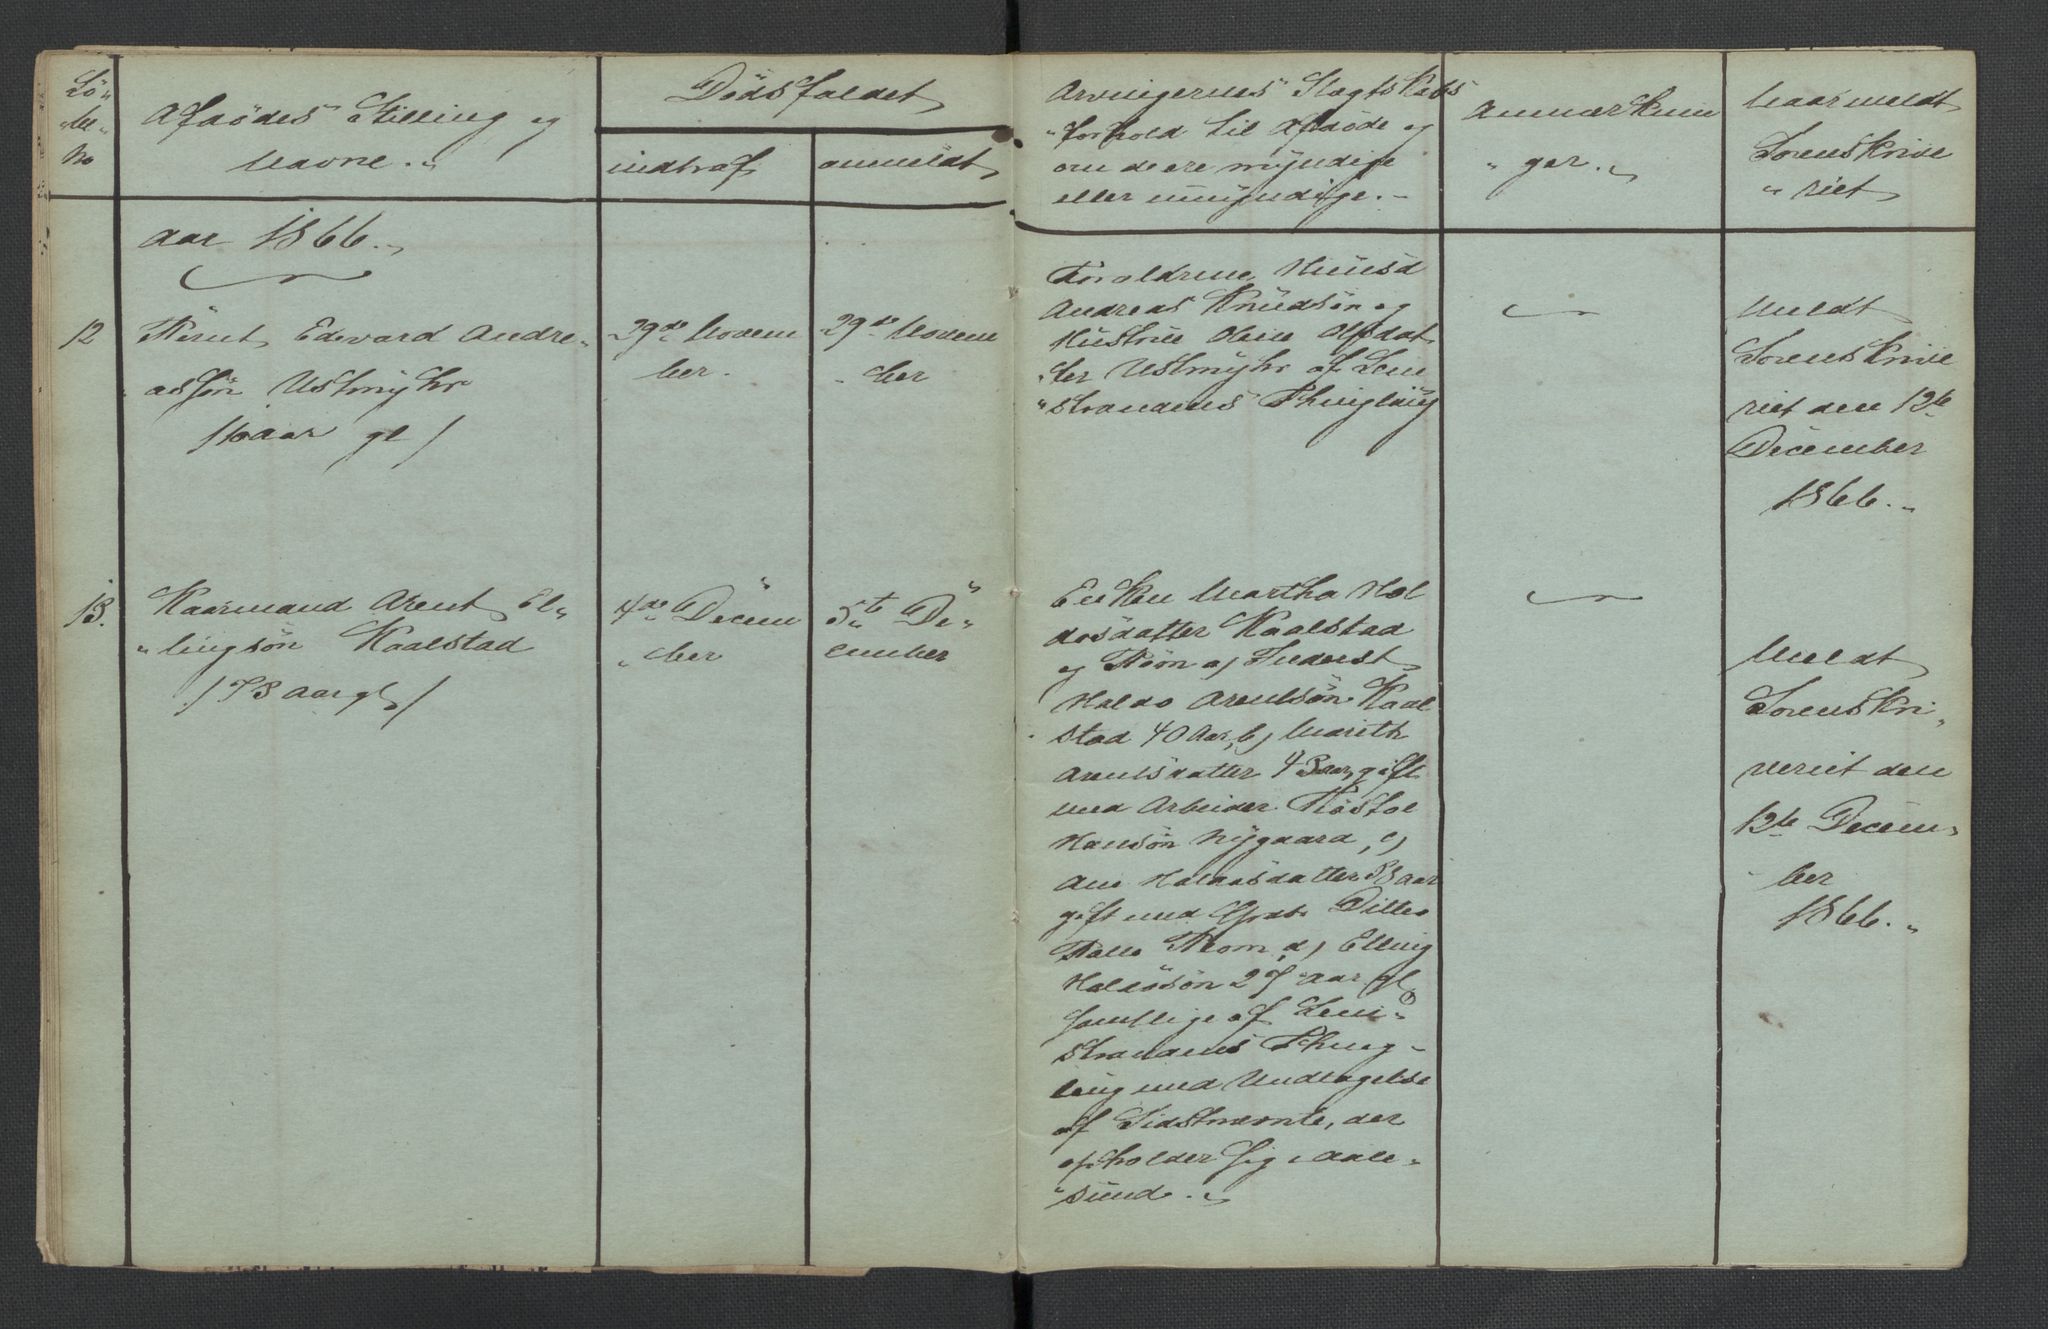 Lö-
"be"
No
Afdödes Stilling og
Navne.
Dödsfaldet
indtraf
anmeldt
Arvingernes Slægtskabs
"forhold til Afdöde og
om de ere myndige
eller umyndige.-
Anmærknin
"ger.
Naar meldt
Sorenskrive
"riet
Aar 1866.
12
Bernt Edvard Andre-
assön Ustmyhr
/16 aar gl/
29de Novem
ber.
29de Novem
ber
Foroldrene Huusd
Andreas Knudsön og
Hustrue Oline Olsdat
"ter Ustmyhr af Lens
"strandens Thinglaug
Meldt
Sorenskrive
riet den 12te
December
1866.
13.
Kaarmand Arent El-
"lingsön Kaalstad
/73 aar gl/
4de Decem
"ber
5te De-
cember
Enken Martha Hal
dosdatter Kaalstad
og Börn a) Inderst
Haldo Arentsön Kaal
stad 40 Aar, b) Marith
Arentsdatter 43 aar, gift
med Arbeider
Hansön Nygaard, c)
Ane Haldosdatter 38 aar
gift med Gbdr.
d) Elling
Haldosön 27 aar gl
samtlige af Len-
strandens Thing-
laug med Undtagelse
af Sidstnævnte, der
opholder sig i Aale-
"sund.
Meldt
Sorenskri-
veriet den
12te Decem-
ber
1866.